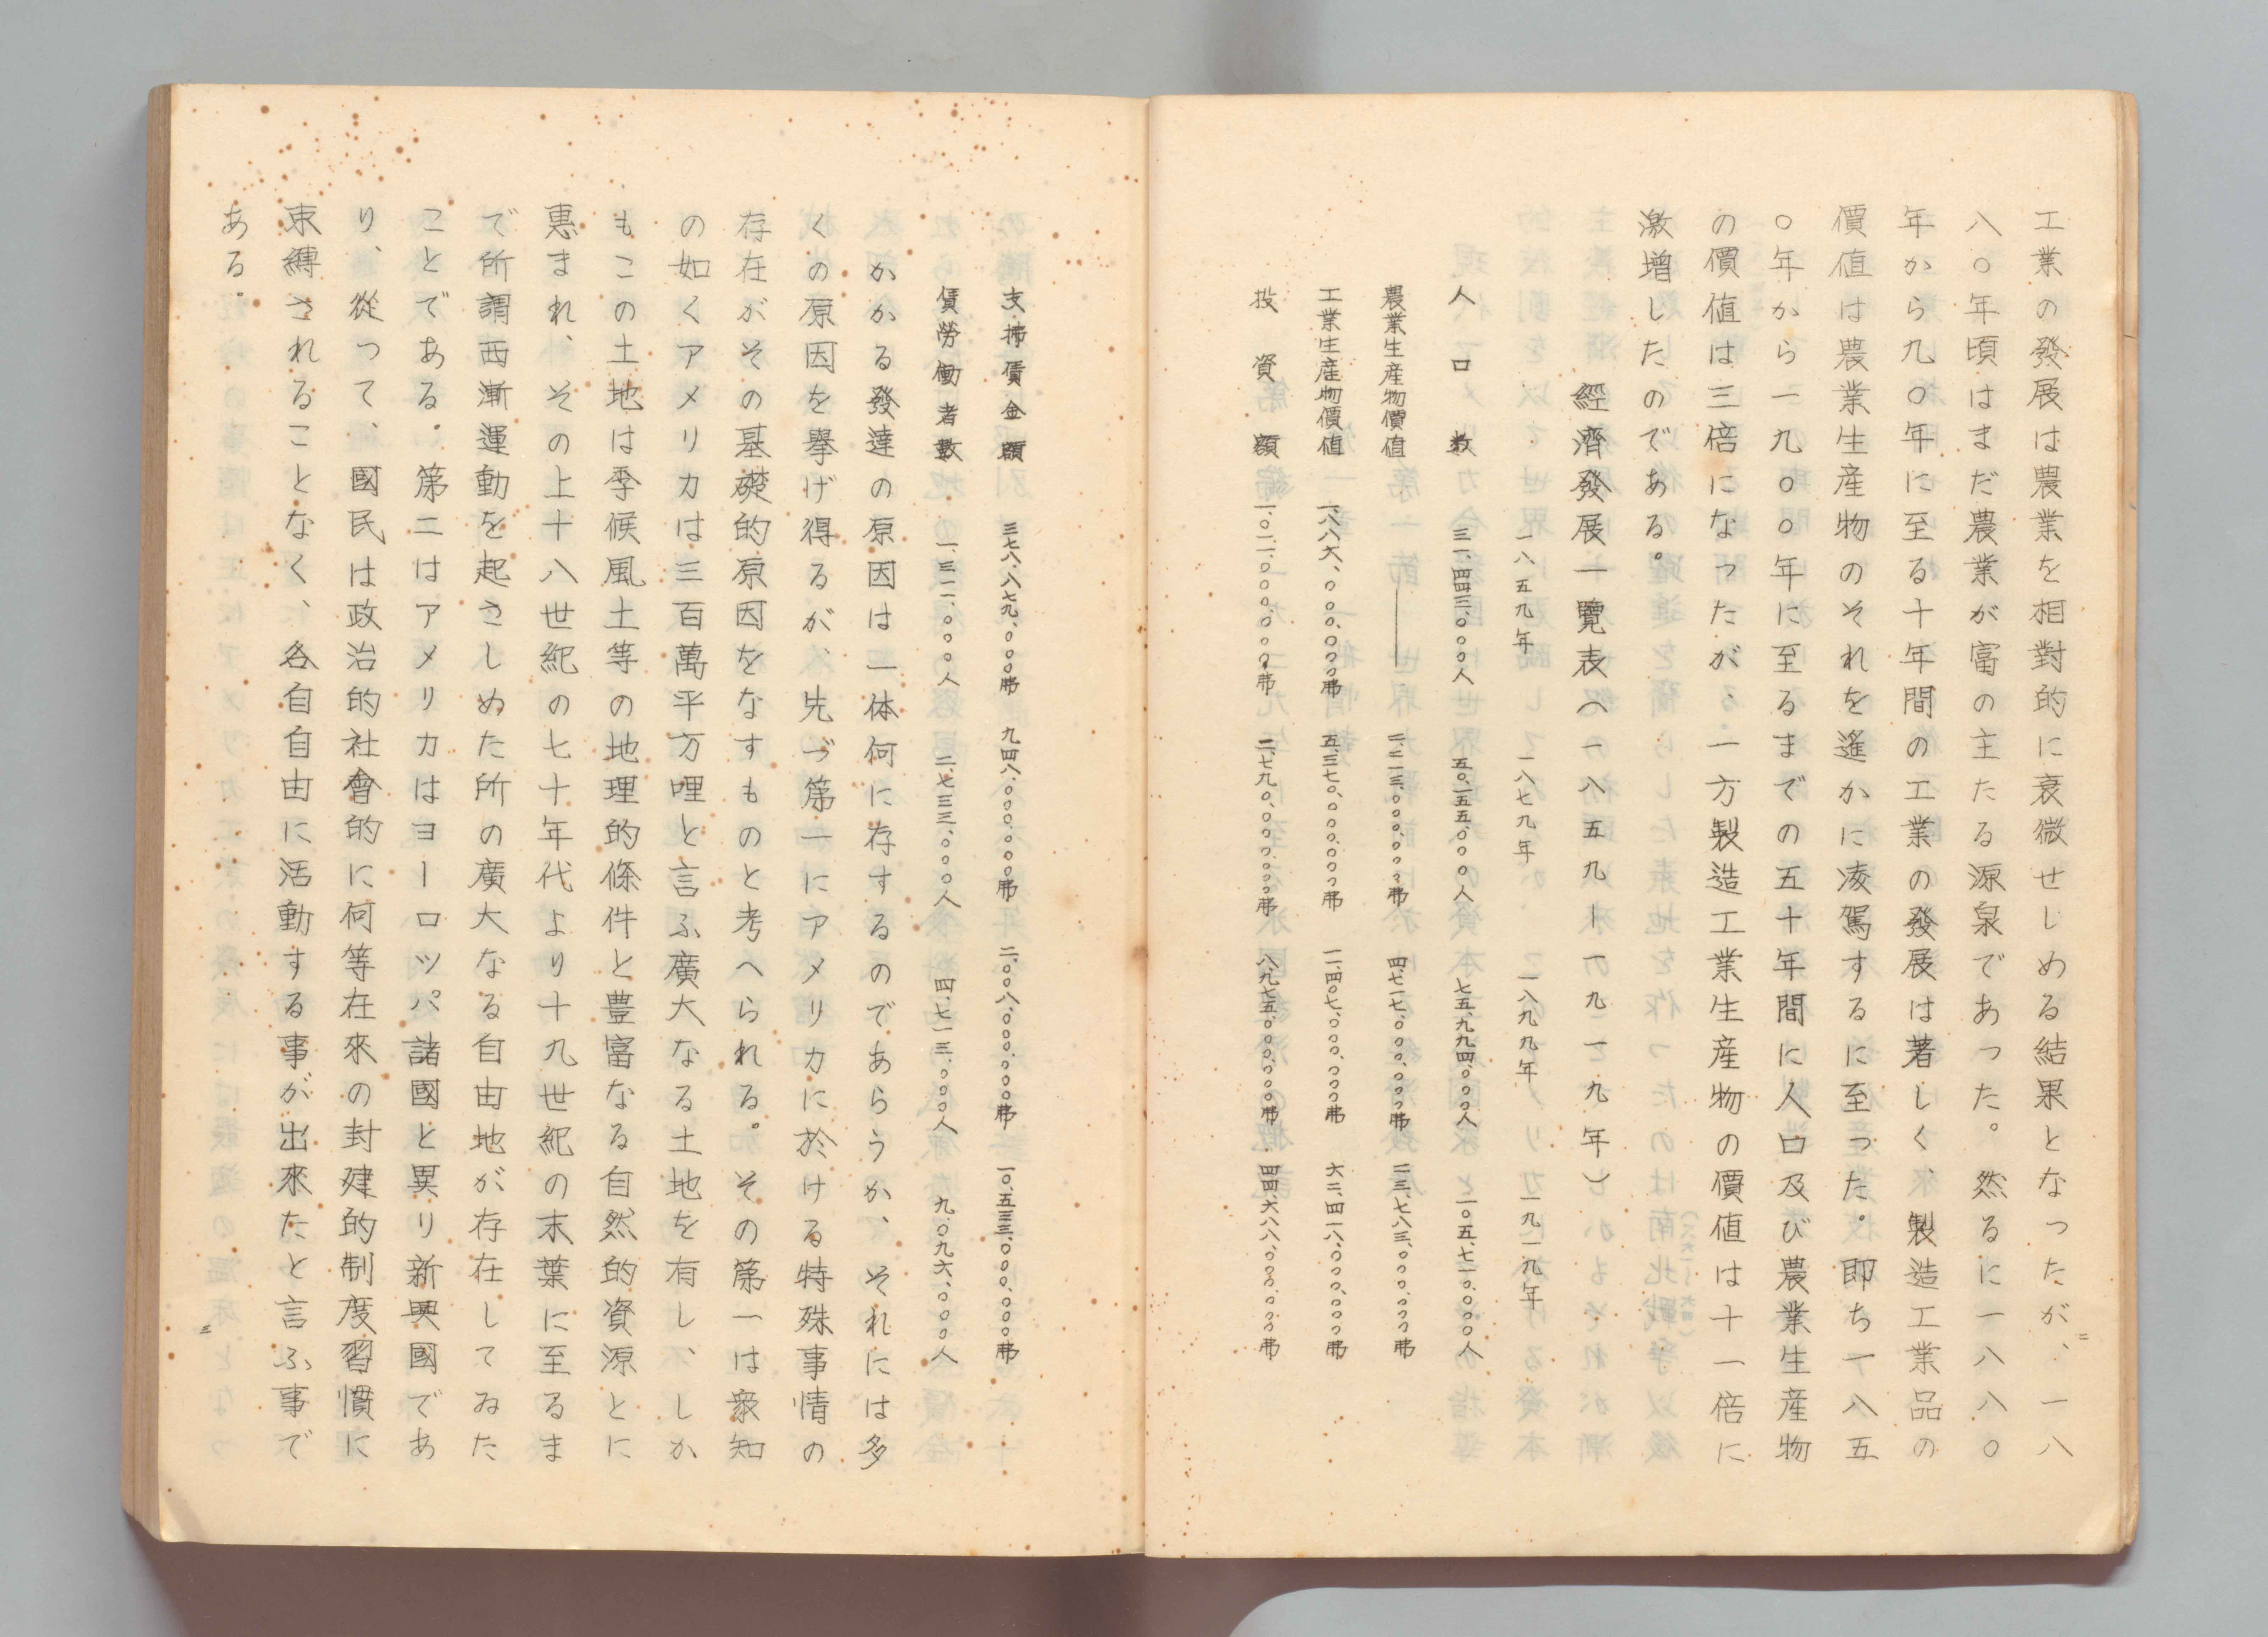 工業の發展は農業を相對的に衰微せしめる結果となったが、一八
八〇年頃はまだ農業が富の主たる源泉であった。然るに一八八〇
年から九〇年に至る十年間の工業の發展は著しく、製造工業品の
價値は農業生産物のそれを遙かに凌駕するに至った。即ち一八五
〇年から一九〇〇年に至るまでの五十年間に人口及び農業生産物
の價値は三倍になったが、一方製造工業生産物の價値は十一倍に
激增したのである。
經濟發展一覽表（一八五九ー一九一九年）
一八五九年 一八七九年 一八九九年 一九一九年
人口数 三一、四四三、〇〇〇人 五〇、一五五、〇〇〇人 七五、九九四、〇〇〇人 一〇五、七一〇、〇〇〇人
農業生産物價値 ―― 二、二一三、〇〇〇、〇〇〇弗 四、七一七、〇〇〇、〇〇〇弗 二三、七八三、〇〇〇、〇〇〇弗
工業生産物價値 一、八八六、〇〇〇、〇〇〇弗 五、三七〇、〇〇〇、〇〇〇弗 一一、四〇七、〇〇〇、〇〇〇弗 六二、四一八、〇〇〇、〇〇〇弗
投資額 一、〇一一、〇〇〇、〇〇〇弗 二、七九〇、〇〇〇、〇〇〇弗 八、九七五、〇〇〇、〇〇〇弗 四四、六八八、〇〇〇、〇〇〇弗
二
支拂賃金額 三七八、八七九、〇〇〇弗 九四八、〇〇〇、〇〇〇弗 二、〇〇八、〇〇〇、〇〇〇弗 一〇、五三三、〇〇〇、〇〇〇弗
賃勞働者數 一、三一一、〇〇〇人 二、七三三、〇〇〇人 四、七一三、〇〇〇人 九、〇九六、〇〇〇人
かかる發達の原因は一体何に存するのであらうか、それには多
くの原因を擧げ得るが、先づ第一にアメリカに於ける特殊事情の
存在がその基礎的原因をなすものと考へられる。その第一は衆知
の如くアメリカは三百萬平方哩と言ふ廣大なる土地を有し、しか
もこの土地は季候風土等の地理的條件と豊富なる自然的資源とに
惠まれ、その上十八世紀の七十年代より十九世紀の末葉に至るま
で所謂西漸運動を起さしめた所の廣大なる自由地が存在してゐた
ことである。第二はアメリカはヨーロッパ諸國と異り新興國であ
り、從って、國民は政治的社會的に何等在來の封建的制度習慣に
束縛されることなく、各自自由に活動する事が出來たと言ふ事で
ある。
三